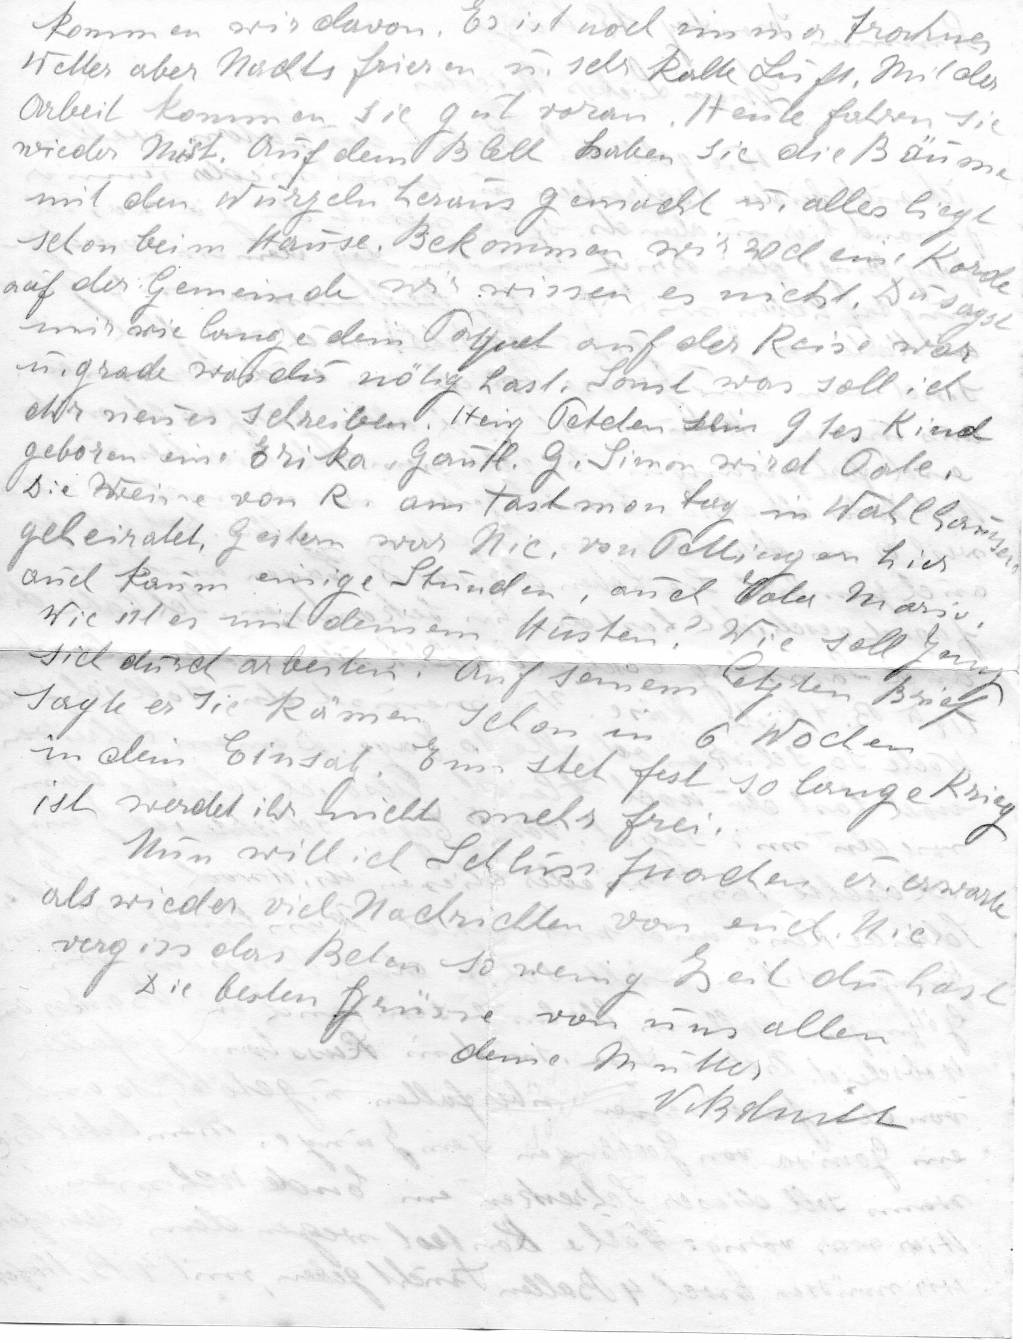 kommen wir davon. Es ist noch immer trocknes
Wetter aber Nachts frieren u. sehr kalte Luft. Mit der
Arbeit kommen sie gut voran. Heute fahren sie
wieder Mist. Auf dem Blell haben sie die Bäume
mit den Wurzeln heraus gemacht u. alles liegt
schon beim Hause. Bekommen wir noch eine Korde
auf der Gemeinde wir wissen es nicht. Du sagst
mir wie lange dein Paquet auf der Reise war
u. grade was du nötig hast. Sonst was soll ich
dir neues schreiben. Petelen sein 9tes Kind
geboren eine Erika, G. Simon wird
Die von R. am Fastmontag in Wahlhausen
geheiratet. Gestern war Nic. von Pettingen hier
auch kaum einige Stunden, auch Marie.
Wie ist es mit deinem Husten? Wie soll Jemp
sich durch arbeiten? Auf seinem letzten Brief
sagte er sie kämen schon in 6 Wochen
in dein Einsat. Ein stet fest so lange Krieg
ist werdet ihr nicht mehr frei.
Nun will ich Schluss machen u. erwarte
als wieder viel Nachrichten von euch. Nic
vergiss das Beten so wenig Zeit du hast
Die besten Grüsse von uns allen
deine Mutter